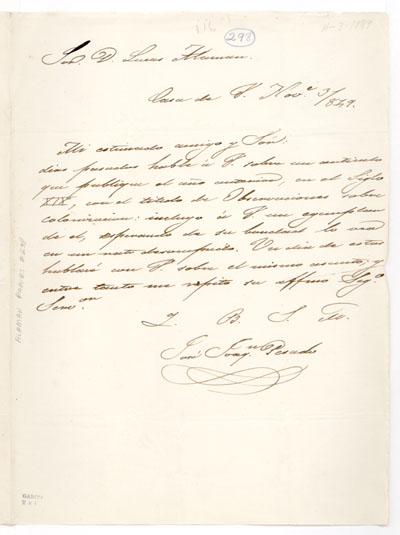 298
11-3-1849
Sor. D. Lucas Alaman.
Casa de V. Nove. 3/849.
Mi estimado amigo y Sōr:
dias pasados hablé á V. sobre un artículo
que publiqué el año anterior, en el Siglo
XIX, con el título de Observaciones sobre
colonizacion: incluyo á V. un ejemplar
de él, esperando de su bondad lo vea
en un rato desocupado. Un dia de estos
hablaré con V. sobre el mismo asunto; y
entre tanto me repito su affmo Segº.
Serv.or
Q. B. S. M.
José Joaqn Pesado
ALAMAN PAPERS # 298
GARCIA